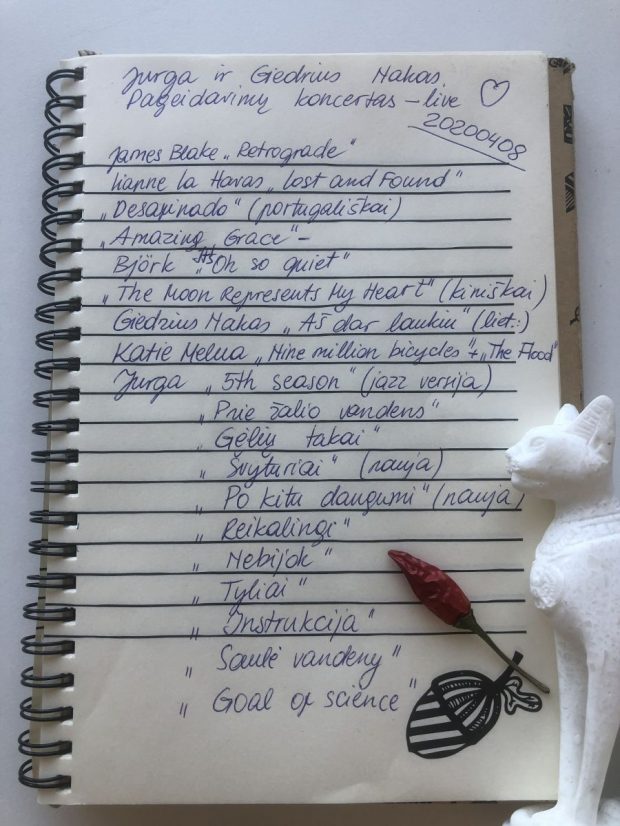 Jurga ir Giedrius Nakas
Pageidavimų koncertas – live
20200408
James Blake „Retrograde"
Lianne la Havas „Lost and Found"
„Desafinado" (portugališkai)
„Amazing Grace" –
Björk „It's Oh so quiet"
„The Moon Represents My Heart" (kiniškai)
Giedrius Nakas „Aš dar laukiu" (liet.)
Katie Melua „Nine million bicycles" + „The Flood"
Jurga „5th season" (jazz versija)
„Prie žalio vandens"
„Gėlių takai"
„Švyturiai" (nauja)
„Po kitu dangumi" (nauja)
„Reikalingi"
„Nebijok"
„Tyliai"
„Instrukcija"
„Saulė vandeny"
„Goal of science"